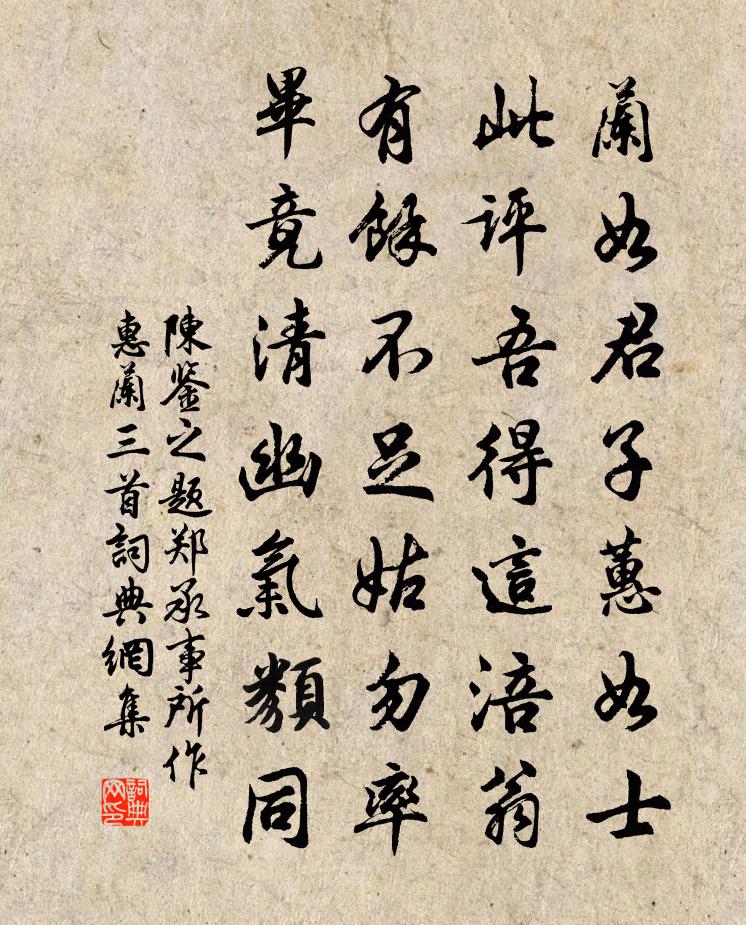 蘭如君子蕙如士
此評吾得這涪翁
有餘不足姑勿率
畢竟清幽氣類同
陳鉴之題郑承事所作
惠蘭三首詞典網集
詞典网印